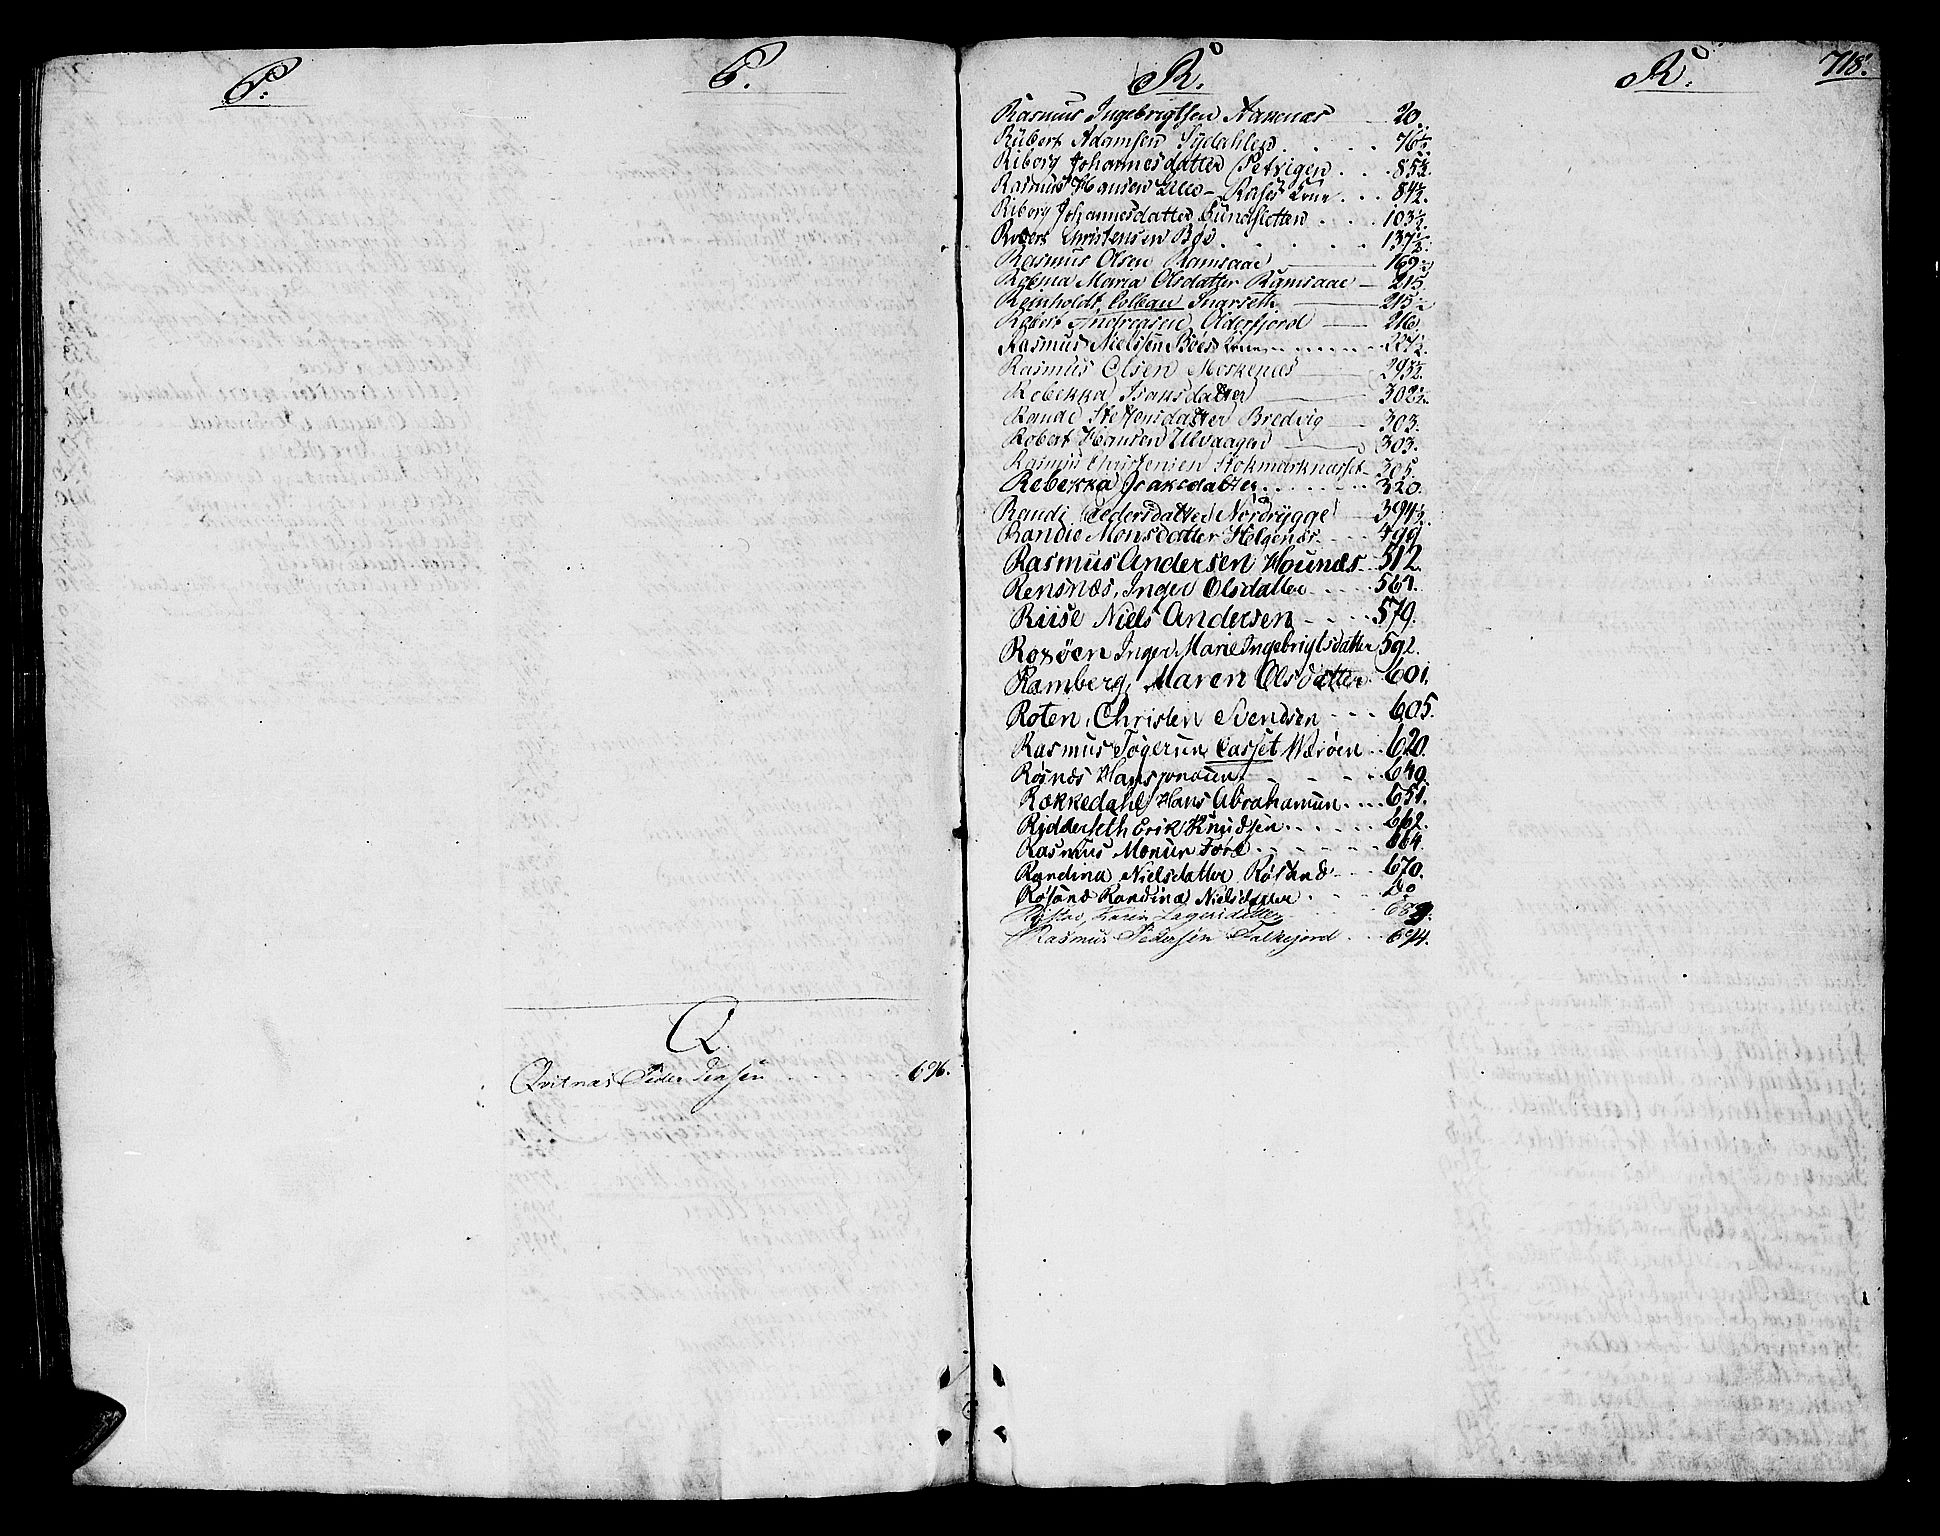 P.
P.
Q.
Qvitnæs Peder Jensen . . . . 696.
R.
R.
718.
Rasmus Ingebrigtsen Aaknæs 20.
Rübert Adamsen Sydahlen . . . . 76½
Riborg Johannesdatter Petvigen . . . 85½.
Rasmus Hansen Lille - Kone . . . 84½.
Riborg Johannesdatter Sundsletten . . . . 103½
Robert Christensen Böe . . . . . 137½.
Rasmus Olsen Ramsaae 169½
Maria Olsdatter Ramsaae - 215.
Reinholdt Colban Snarseth 215½
Robert Andreasen Olderfjord 216.
Rasmus Nielsen Böes Kone . . . . . . . 227½.
Rasmus Olsen Moskenæs 293½.
Rebekka Isaksdatter 302½.
Rande Steffensdatter Bredvig 303.
Robert Hansen Ulvaagen 303.
Rasmus Christensen Stokmarknæsset - 305.
Rebekka Isaksdatter . . . . . . . 320.
Randi Pedersdatter Nordrygge 394½
Randie Monsdatter Helgenæs . . . . 499
Rasmus Andersen Hounæs . . 512.
Rensnæs, Inger Olsdatter - - - - 564.
Riise Niels Andersen - - - - 579.
Roxöen Inger Marie Ingebrigtsdatter 592.
Ramberg, Maren Olsdatter - 601.
Roten, Christen Svendsen - - - 605.
Rasmus Togersen Casset Værøen . . 620.
Røsnæs Hans Jonsen - - - - - 649.
Rækkedahl Hans Abrahamsen . . . . 651.
Ridderseth Erik Knudsen . . . . . 662.
Rasmus Monsen Fore - - - - - - 664.
Randina Nielsdatter Røsand - - - 670.
Røsand Randina Nielsdatter . . . . do
Karen Lagersdatter . . . . 689.
Rasmus Pedersen Falkefjord . . . 694.